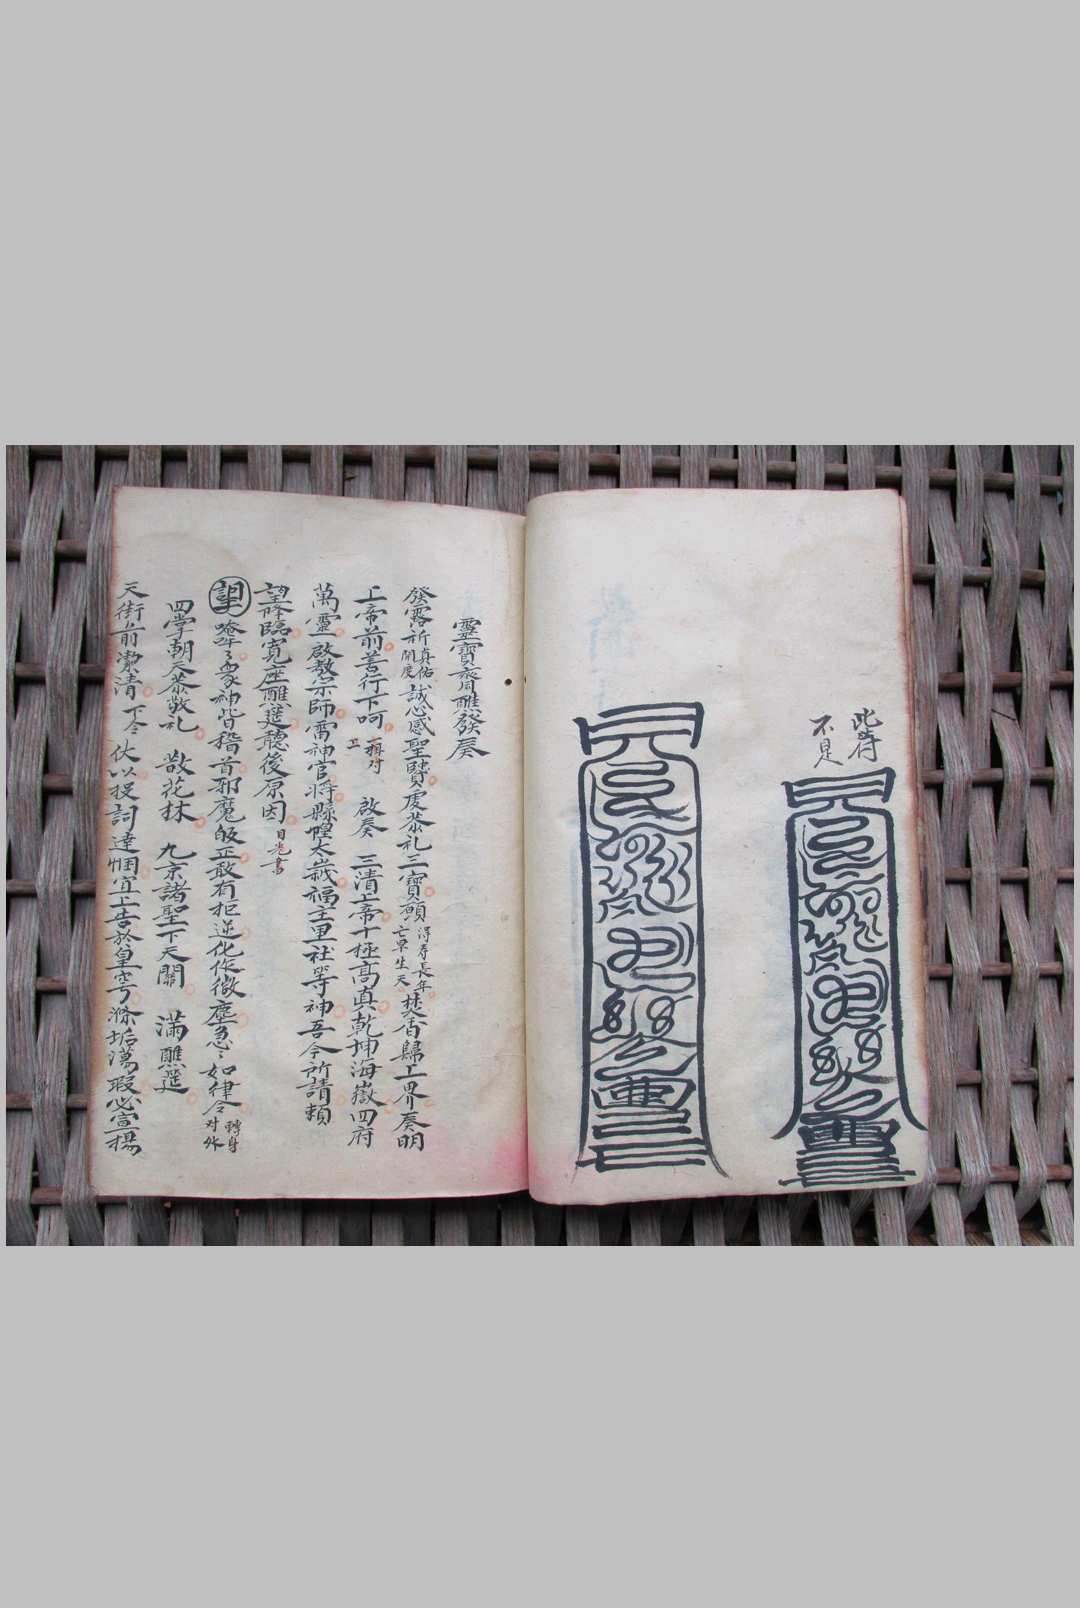 此符
不是
靈寶齋醮發奏
發露祈真佑開度誠心感聖賢虔恭礼三寶願得寿長年亡早生天焚香歸上界奏明
上帝前善行下呵 啟奏 三清上帝十極高真乾坤海嶽四府
萬靈啟教宗師雷神官将縣惶太歲福主里社等神吾今所請賴
望降臨寛座醮筵聽後原因
唵吽衆神皆稽首邪魔皈正敢有犯逆化作微塵急如律令轉身对外
四学朝天恭敬礼 散花林 九京諸聖下天關 滿醮筵
天街前潔清 下令 伏以投詞達悃宜上告於皇穹滌垢蕩瑕必宣揚